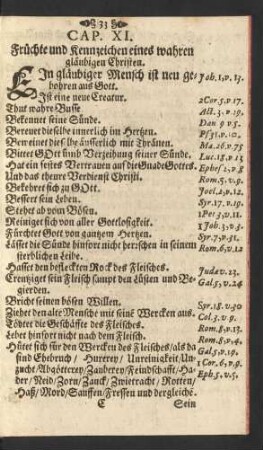 33
CAP. XI.
Früchte und Kennzeichen eines wahren
gläubigen Christen.
EIn gläubiger Mensch ist neu ge- Joh.1, v.13.
bohren aus Gott.
Ist eine neue Creatur. 2 Cor.5, v.17.
Thut wahre Busse Act.3. v.19.
Bekennet seine Sünde. Dan 9 v.5.
Bereuet dieselbe innerlich im Hertzen. Ps.51.
Beweinet dieselbe äusserlich mit Thränen. Ma.26, v.75
Bittet GOtt umb Verzeihung seiner Sünde. Luc.18, v.13
Hat ein festes Vertrauen auf die Gnade Gottes. Ephes.2, v.8
Und das theure Verdienst Christi. Rom.5. v.9.
Bekehret sich zu GOtt. Joel.2, v.12.
Bessert sein Leben. Syr.17, v.19.
Stehet ab vom Bösen. 1 Pet.3, v.11.
Reiniget sich von aller Gottlosigkeit. 1 Joh.3, v.3.
Fürchtet Gott von gantzem Hertzen. Syr.7, v.31.
Lässet die Sünde hinfort nicht herrschen in seinem Rom.6, v.12.
sterblichen Leibe.
Hasset den befleckten Rock des Fleisches. Judæ v.23.
Creutziget sein Fleisch sampt den Lüsten und Be- Gal.5, v.24
gierden.
Bricht seinen bösen Willen. Syr.18. v.30
Ziehet den alte Mensche mit seinē Wercken aus. Col.3. v.9.
Tödtet die Geschäffte des Fleisches. Rom.8, v.13.
Lebet hinfort nicht nach dem Fleisch. Rom.8, v.4.
Hütet sich für den Wercken des Fleisches / als da Gal.5, v.19.
sind Ehebruch / Hurerey / Unreinigkeit / Un- 1 Cor.6, v.9.
zucht / Abgötterey / Zauberey / Feindschafft / Ha- Eph.5, v.5.
der / Neid / Zorn / Zanck / Zwietracht / Rotten /
Haß / Mord / Sauffen / Fressen und dergleichē.
E Sein